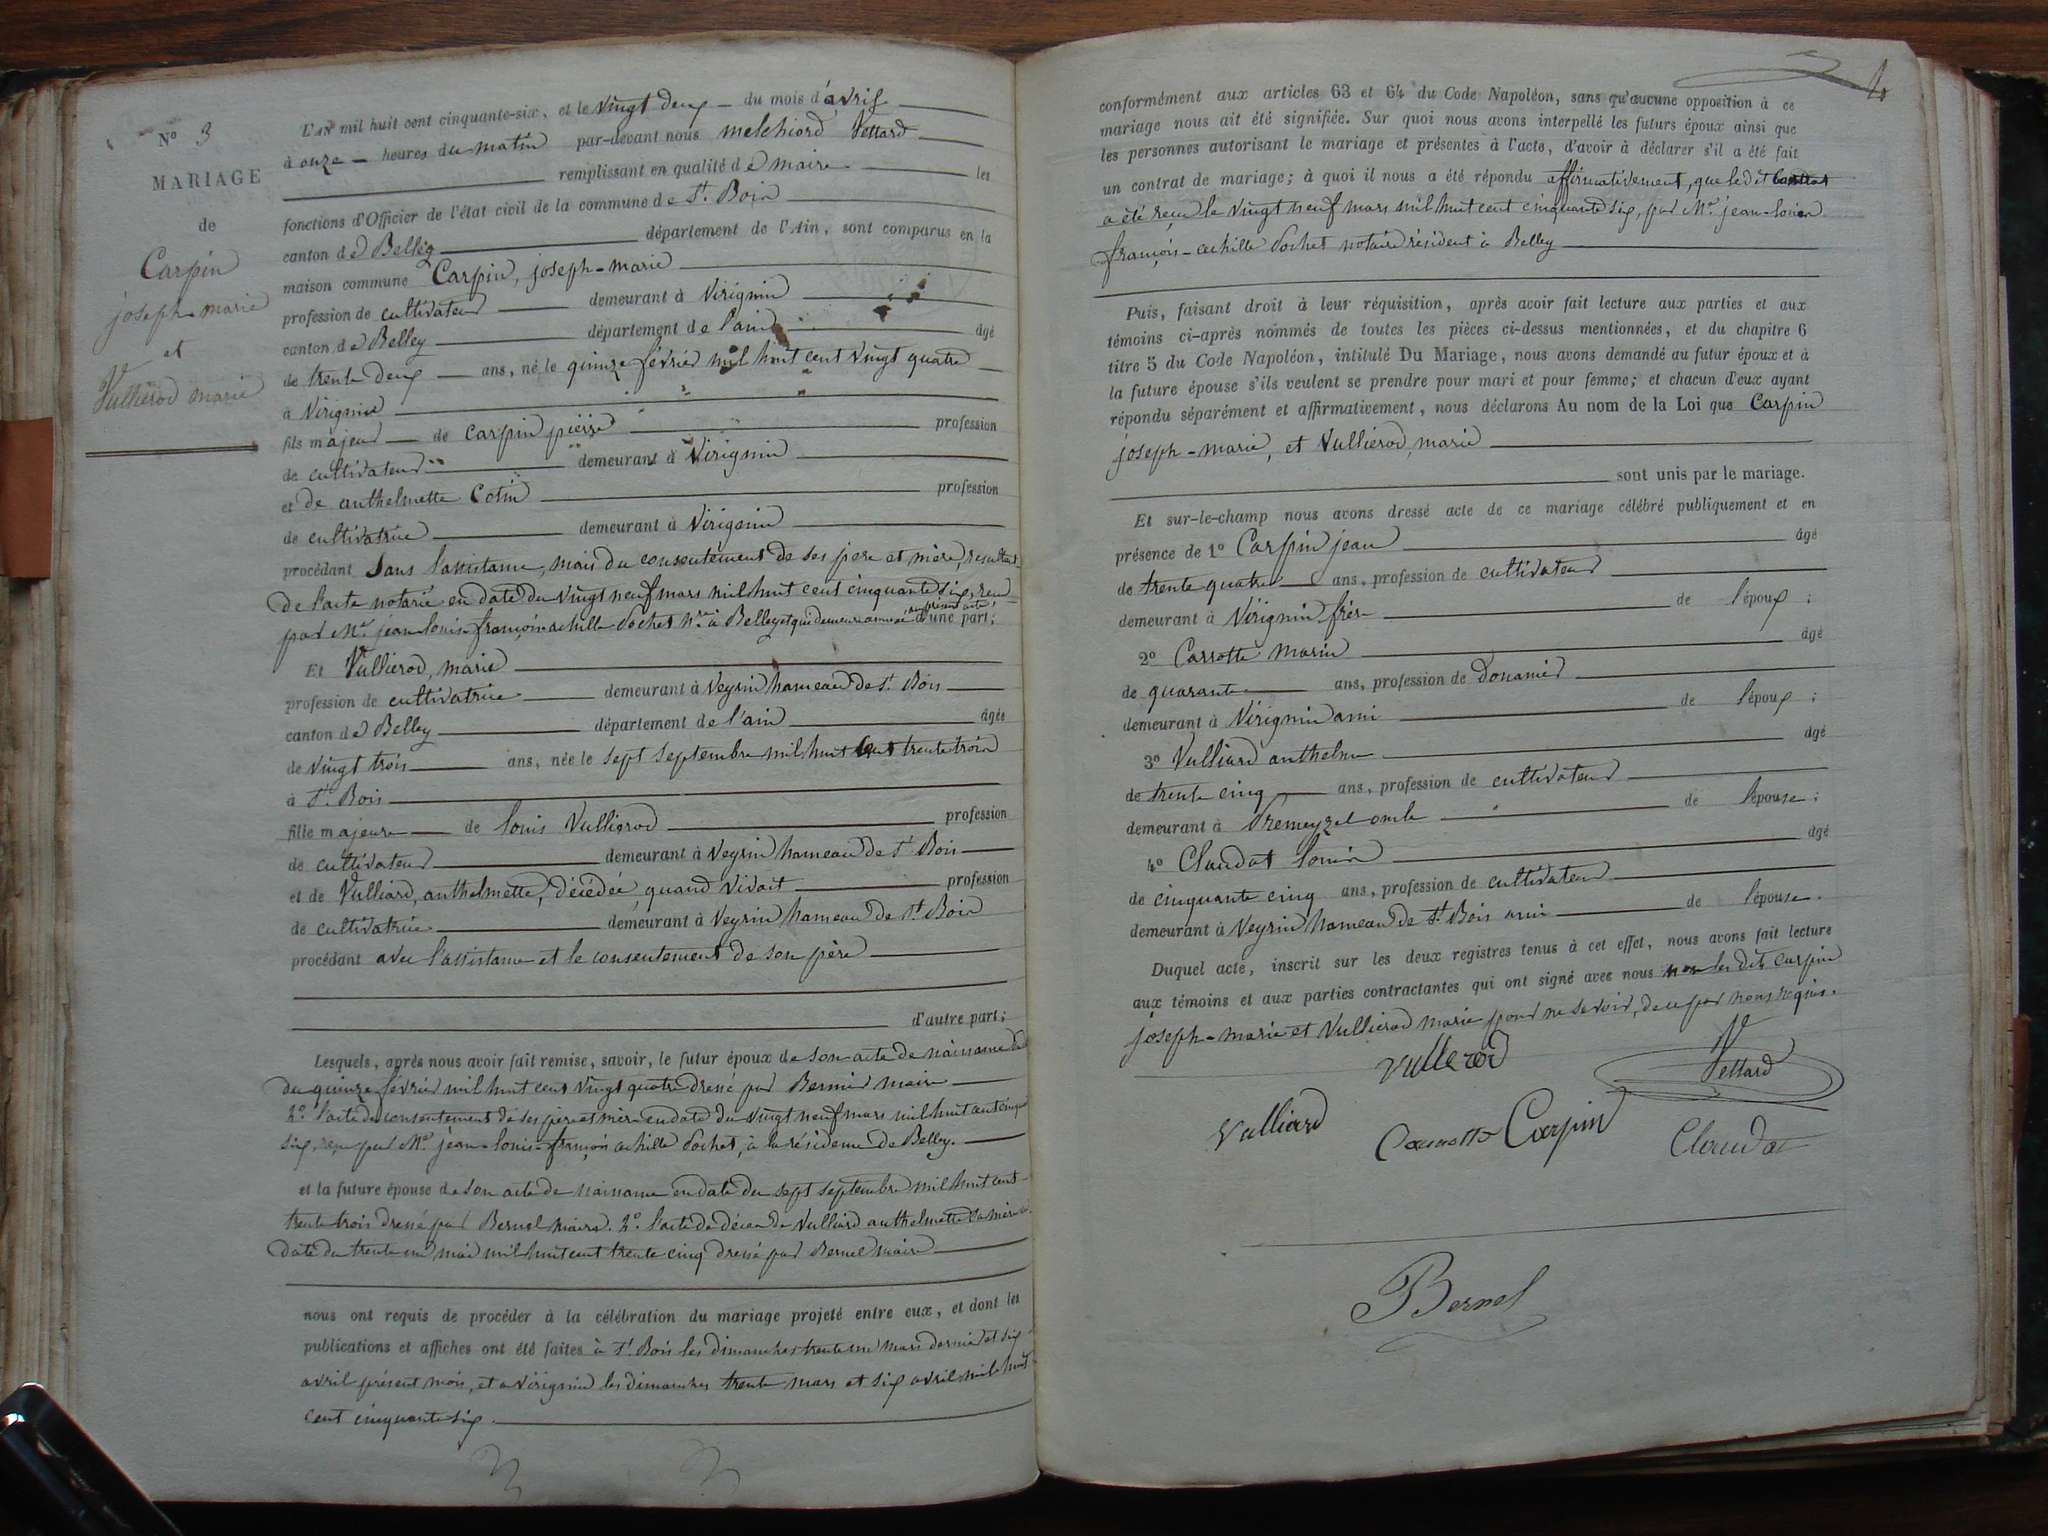 N° 3
MARIAGE
de
Carpin
joseph-marie
et
Vullierod marie
L'AN mil huit cent cinquante-six, et le vingt deux du mois d'avril
à onze heures du matin par-devant nous melchiord Vettard
remplissant en qualité de maire les
fonctions d'Officier de l'état civil de la commune de St. Bois
canton de Belley département de l'Ain, sont comparus en la
maison commune Carpin, joseph-marie
profession de cultivateur demeurant à Virignin
canton de Belley département de l'ain âgé
de trente deux ans, né le quinze février mil huit cent vingt quatre
à Virignin
fils majeur de Carpin pierre profession
de cultivateur demeurant à Virignin
et de anthelmette Cotin profession
de cultivatrice demeurant à Virignin
procédant sans l'assistance, mais du consentement de ses pere et mère, résultant
de l'acte notarié en date du vingt neuf mars mil huit cent cinquante six, reçu
par Me. jean-louis françois achille Pochet Nre. à Belley et qui demeure annexé au présent acte d'une part;
Et Vullierod, marie
profession de cultivatrice demeurant à Veyrin hameau de St. Bois
canton de Belley département de l'ain âgée
de vingt trois ans, née le sept septembre mil huit cent trente trois
à St. Bois
fille majeure de louis Vullierod profession
de cultivateur demeurant à Veyrin hameau de St Bois
et de Vulliard, anthelmette, décédée, quand vivait profession
de cultivatrice demeurant à Veyrin hameau de St. Bois
procédant avec l'assistance et le consentement de son père
d'autre part;
Lesquels, après nous avoir fait remise, savoir, le futur époux de son acte de naissance
du quinze février mil huit cent vingt quatre dressé par Bernier maire
2°. l'acte de consentement de ses père et mère en date du vingt neuf mars mil huit cent cinquante
six, reçu par Me. jean-louis-françois achille Pochet, à la résidence de Belley.
et la future épouse de son acte de naissance en date du sept septembre mil huit cent
trente trois dressé par Bernel maire. 2°. l'acte de décès de Vulliard anthelmette sa mère en
date du trente un mai mil huit cent trente cinq dressé par Bernel maire
nous ont requis de procéder à la célébration du mariage projeté entre eux, et dont les
publications et affiches ont été faites à St. Bois les dimanches trente un mars dernier et six
avril présent mois, et à Virignin les dimanches trente mars et six avril mil huit
cent cinquante six.
4
conformément aux articles 63 et 64 du Code Napoléon, sans qu'aucune opposition à ce
mariage nous ait été signifiée. Sur quoi nous avons interpellé les futurs époux ainsi que
les personnes autorisant le mariage et présentes à l'acte, d'avoir à déclarer s'il a été fait
un contrat de mariage; à quoi il nous a été répondu affirmativement, que ledit Contrat
a été reçu le vingt neuf mars mil huit cent cinquante six, par Me. jean-louis
françois-achille Pochet notaire résident à Belley
Puis, faisant droit à leur réquisition, après avoir fait lecture aux parties et aux
témoins ci-après nommés de toutes les pièces ci-dessus mentionnées, et du chapitre 6
titre 5 du Code Napoléon, intitulé Du Mariage, nous avons demandé au futur époux et à
la future épouse s'ils veulent se prendre pour mari et pour femme; et chacun d'eux ayant
répondu séparément et affirmativement, nous déclarons Au nom de la Loi que Carpin
joseph-marie, et Vullierod, marie
sont unis par le mariage.
Et sur-le-champ nous avons dressé acte de ce mariage célébré publiquement et en
présence de 1° Carpin jean âgé
de trente quatre ans, profession de cultivateur
demeurant à Virignin frère de l'époux;
2° Carrotte Marin âgé
de quarante ans, profession de Douanier
demeurant à Virignin ami de l'époux;
3° Vulliard anthelme âgé
de trente cinq ans, profession de cultivateur
demeurant à Premeyzel oncle de l'épouse;
4° Claudat louis âgé
de cinquante cinq ans, profession de cultivateur
demeurant à Veyrin hameau de St Bois ami de l'épouse.
Duquel acte, inscrit sur les deux registres tenus à cet effet, nous avons fait lecture
aux témoins et aux parties contractantes qui ont signé avec nous non les dits Carpin
joseph-marie et Vullierod marie pour ne savoir, de ce par nous requis.
Vullerod
Vettard
Vulliard
Carrotte Carpin
Claudat
Bernel